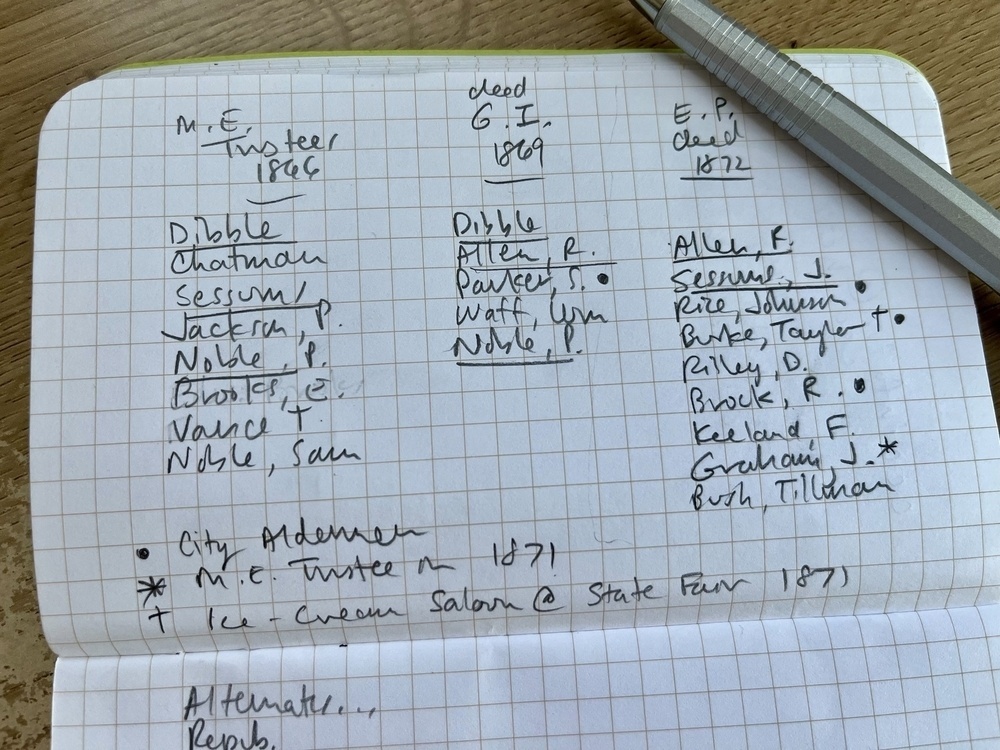 M. E.
Trustees
1866
Dibble
Chatman
Sessums
Jackson, P.
Noble, P.
Brooks, E.
Vance †
Noble, Sam
deed
G. I.
1869
Dibble
Allen, R.
Parker, S. •
Waff, Wm
Noble, P.
E. P.
deed
1872
Allen, R.
Sessums, J.
Rice, Johnson •
Burke, Taylor † •
Riley, D.
Brock, R. •
Keeland, F.
Graham, J. *
Bush, Tillman
• City Aldermen
* M. E. Trustee in 1871
† Ice-Cream Saloon @ State Fair 1871
Alternates...
Repub.